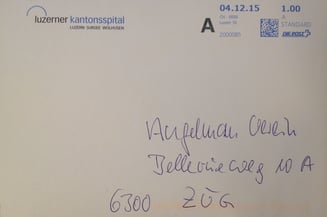 luzerner kantonsspital
LUZERN SURSEE WOLHUSEN
A
04.12.15
CH - 6000
Luzern 16
2000085
1.00
A
STANDARD
DIE POST
Angelman Verein
Bellevueweg 10 A
6300 ZUG